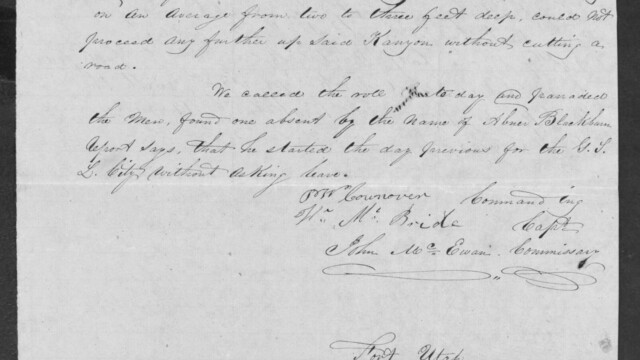 on an average from two to three feet deep, could not
proceed any further up said Kanyon without cutting a
road.
We called the role to day and paraded
the Men, found one absent by the name of Abner Blackburn
report says, that he started the day previous for the G. S.
L. City without asking leave.
P W Cownover Commanding
Wm Mc Bride Capt
John Mc Ewan. Commissary
Fort Utah